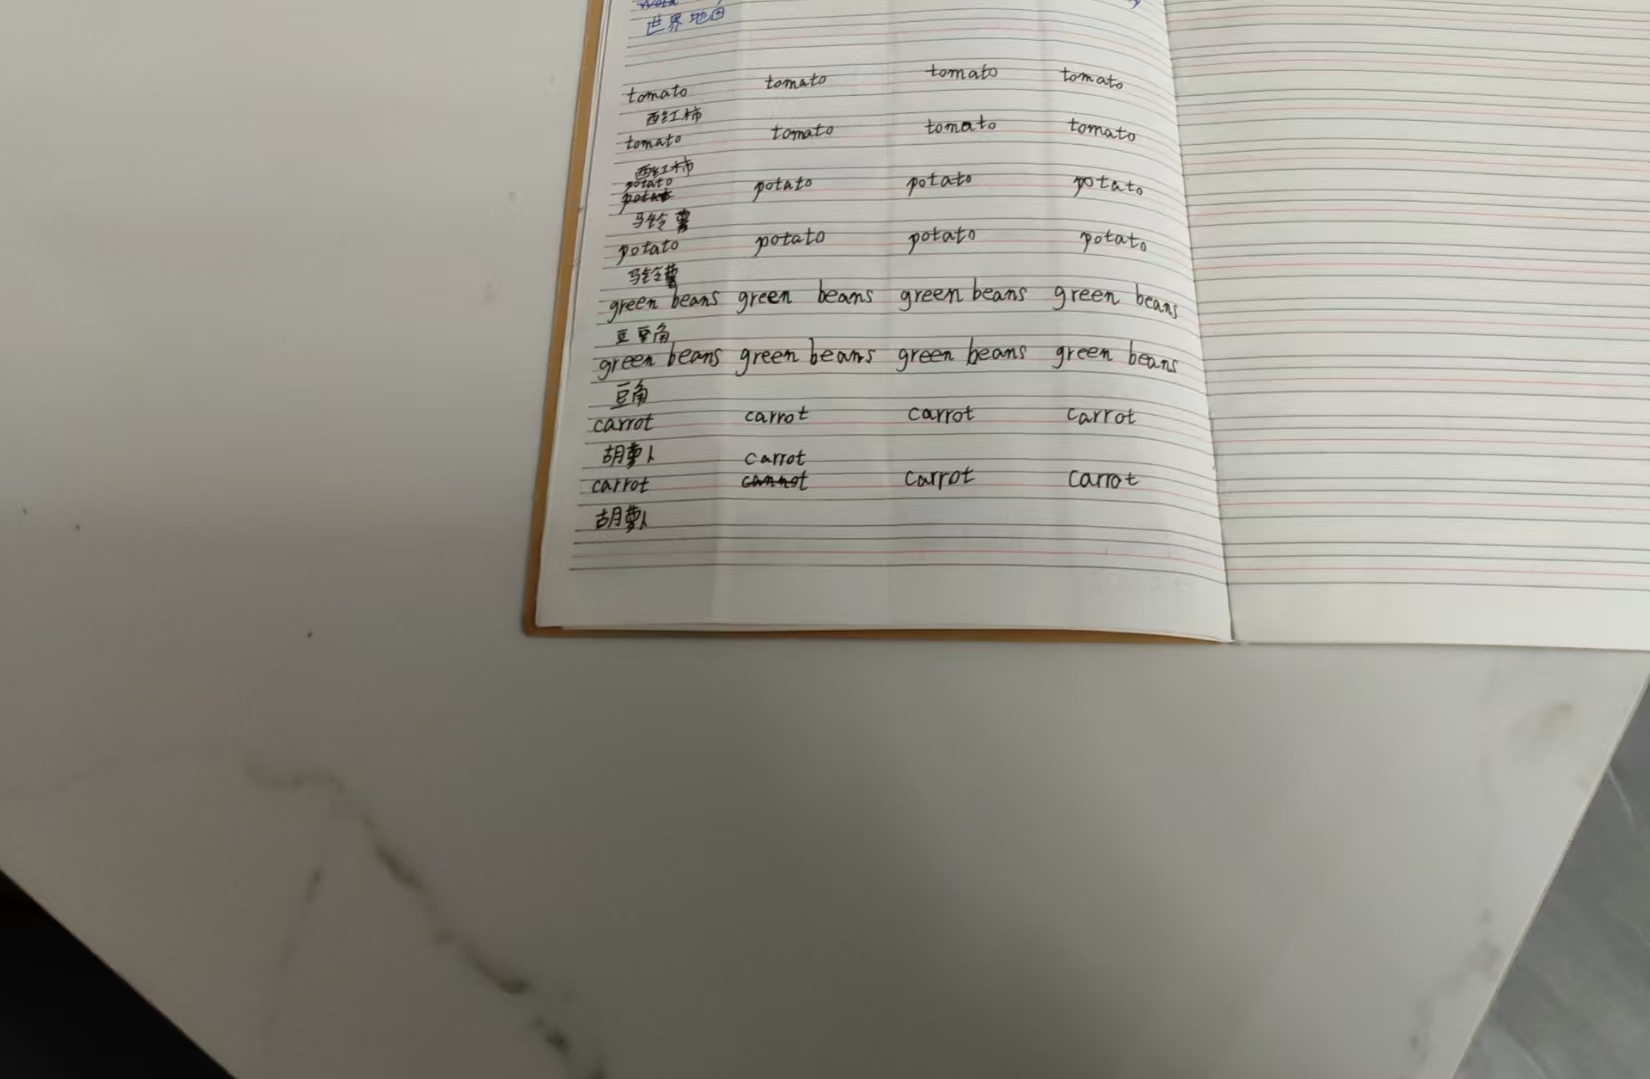 世界地图
tomato tomato tomato tomato
西红柿
tomato tomato tomato tomato
西红柿
potato potato potato potato
马铃薯
potato potato potato potato
马铃薯
green beans green beans green beans green beans
豆豆角
green beans green beans green beans green beans
豆角
carrot carrot carrot carrot
胡萝卜 carrot
carrot carrot carrot
胡萝卜